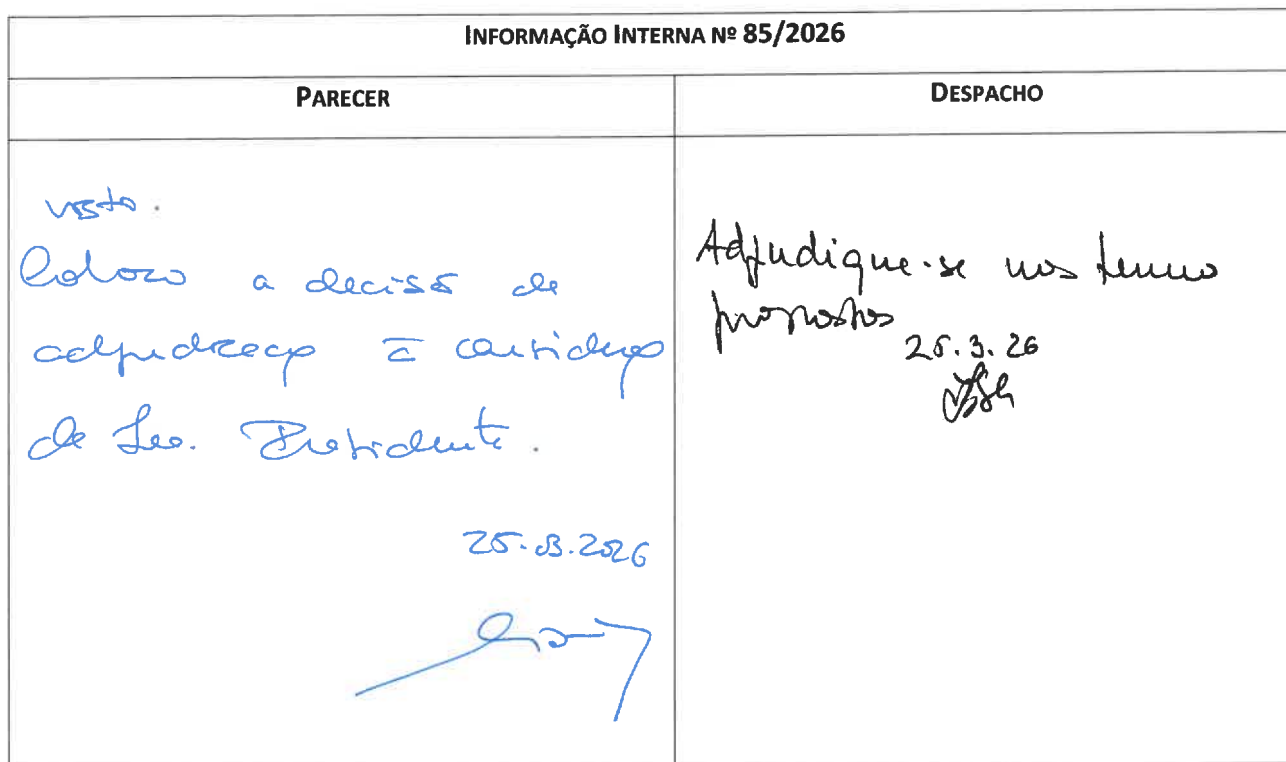 INFORMAÇÃO INTERNA Nº 85/2026
PARECER
visto.
Coloco a decisão de
adjudicação à consideração
de Presidente.
25.03.2026
DESPACHO
Adjudique-se nos termos
propostos
25.3.26